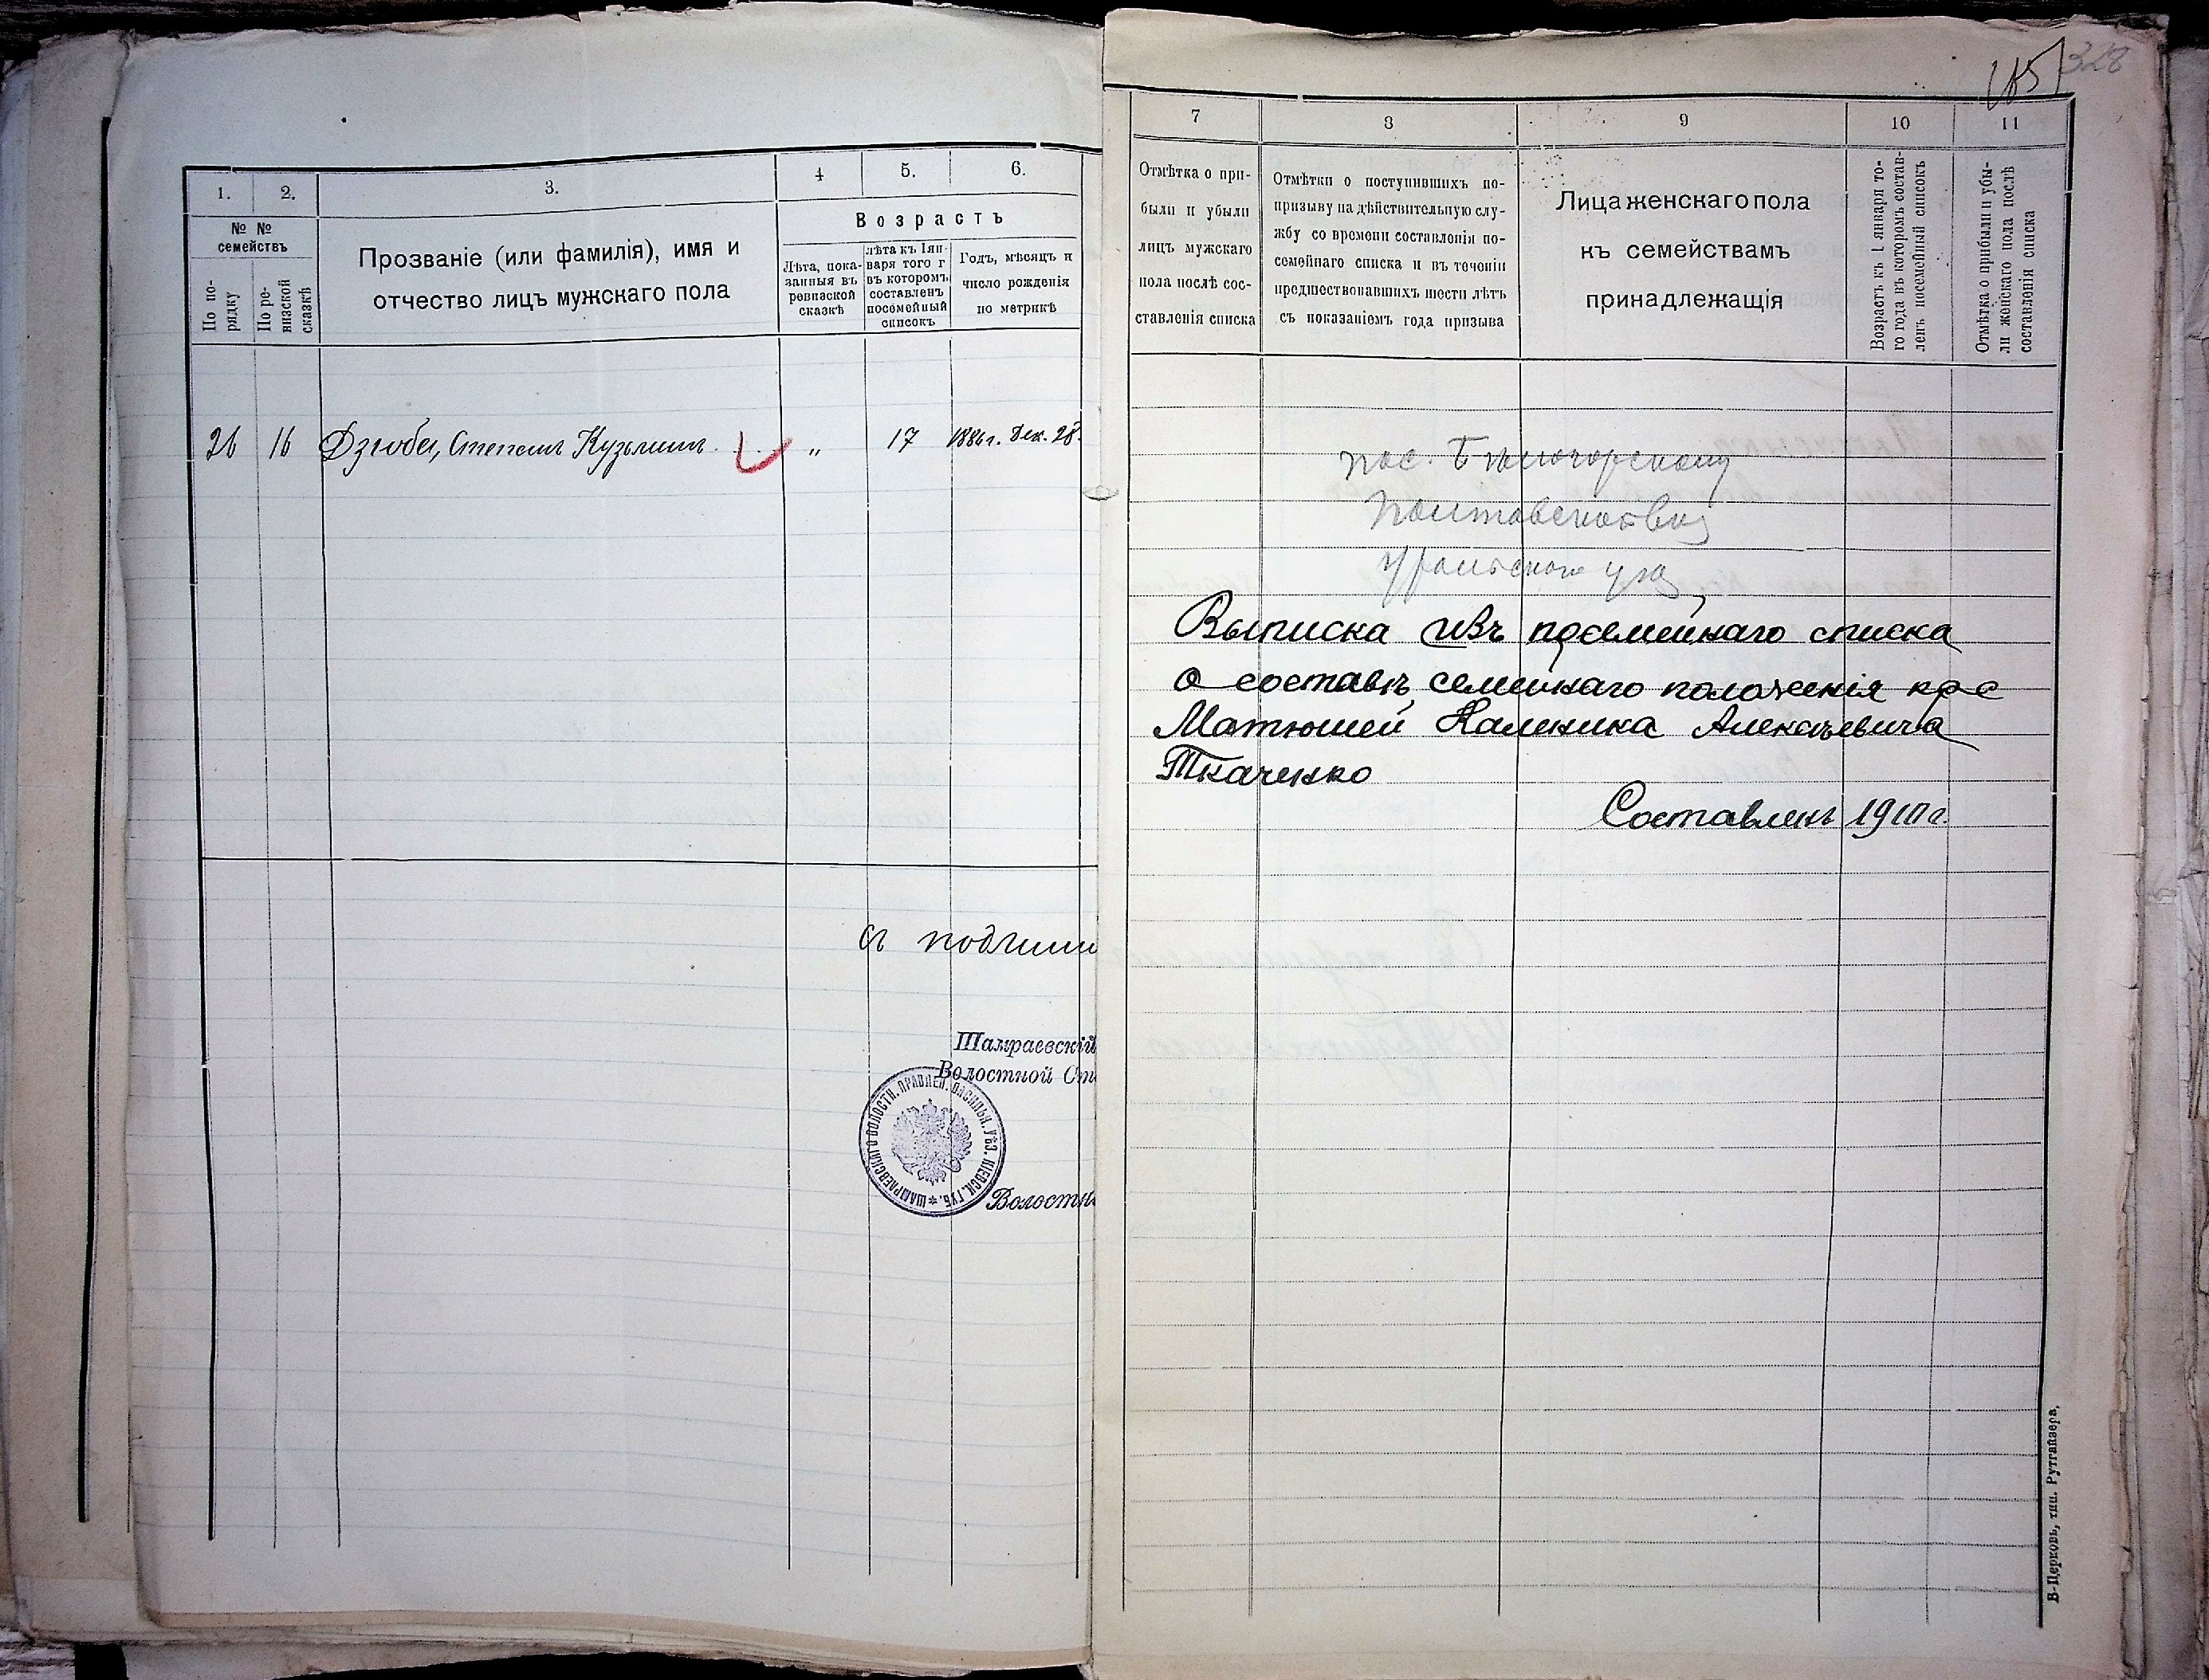 1.
2.
3.
4
5.
6.
№ №
семействъ
По по-
рядку
По ре-
визской
сказкѣ
Прозваніе (или фамилія), имя и
отчество лицъ мужскаго пола
Возрастъ
Лѣта, пока-
занныя въ
ревизской
сказкѣ
лѣта къ 1 ян-
варя того г
въ которомъ
составленъ
посемейный
списокъ
Годъ, мѣсяцъ и
число рожденія
по метрикѣ
26 16 Дзюба, Степанъ Кузьминъ „ 17 1886 г. Дек. 28
Съ подлин
Шамраевскій
Волостной Ст
ШАМРАЕВСКАГО ВОЛОСТН. ПРАВЛЕН. ВАСИЛЬК. УѢЗ. КІЕВСК. ГУБ. *
Волостн
165 328
7
8
9
10
11
Отмѣтка о при-
были и убыли
лицъ мужскаго
пола послѣ сос-
ставленія списка
Отмѣтки о поступившихъ по-
призыву на дѣйствительную слу-
жбу со времени составленія по-
семейнаго списка и въ теченіи
предшествовавшихъ шести лѣтъ
съ показаніемъ года призыва
Лица женскаго пола
къ семействамъ
принадлежащія
Возрастъ къ 1 января то-
го года въ которомъ состав-
ленъ посемейный списокъ
Отмѣтка о прибыли и убы-
ли женскаго пола послѣ
составленія списка
пос. Бѣлогорскому
Полтавской вол
Уральского уѣз
Выписка изъ посемейнаго списка
о составѣ семейнаго положенія кре
Матюшей Каленика Алексѣевича
Ткаченко
Составленъ 1910 г.
Б-Церковь, тип. Рутгайзера.